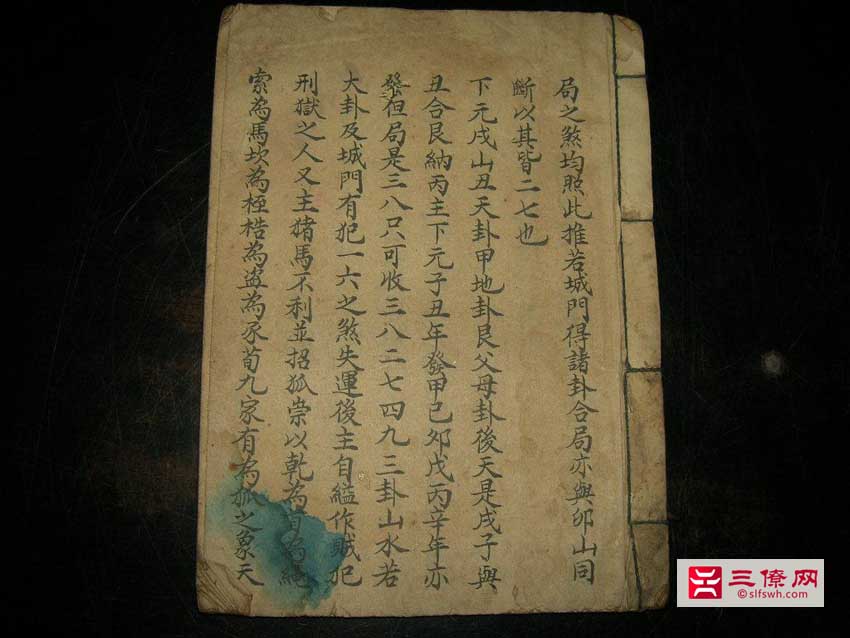 局之煞均照此推若城門得諸卦合局亦與卯山同
斷以其皆二七也
下元戌山丑天卦甲地卦艮父母卦後天是戌子與
丑合艮納丙主下元子丑年發甲巳卯戌丙辛年亦
發但局是三八只可收三八二七四九三卦山水若
大卦及城門有犯一六之煞失運後主自縊作賊犯
刑獄之人又主猪馬不利並招狐祟以乾為首為繩
索為馬坎為桎梏為盗為豕荀九家有為狐之象天
三僚网
slfswh.com